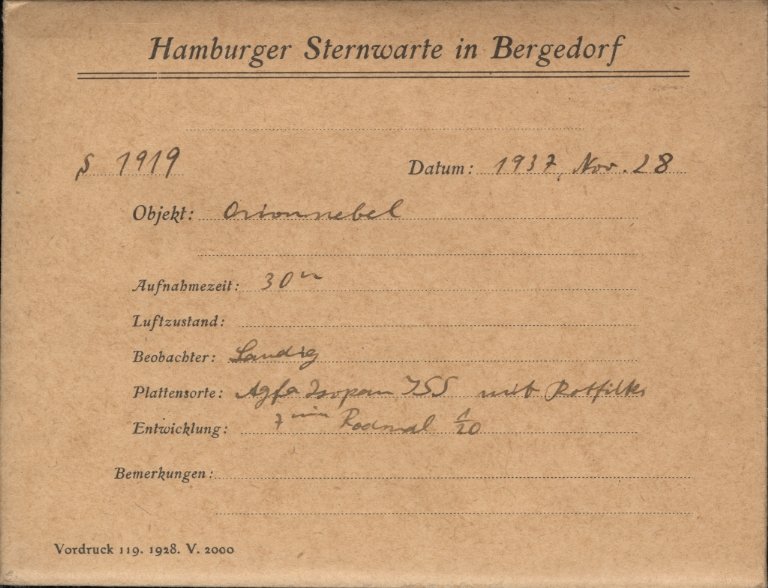 Hamburger Sternwarte in Bergedorf
S 1919 Datum: 1937, Nov. 28
Objekt: Orionnebel
Aufnahmezeit: 30m
Luftzustand:
Beobachter:
Plattensorte: Agfa Isopan ISS mit Rotfilter
Entwicklung: 7 min Rodinal 1/20
Bemerkungen:
Vordruck 119. 1928. V. 2000